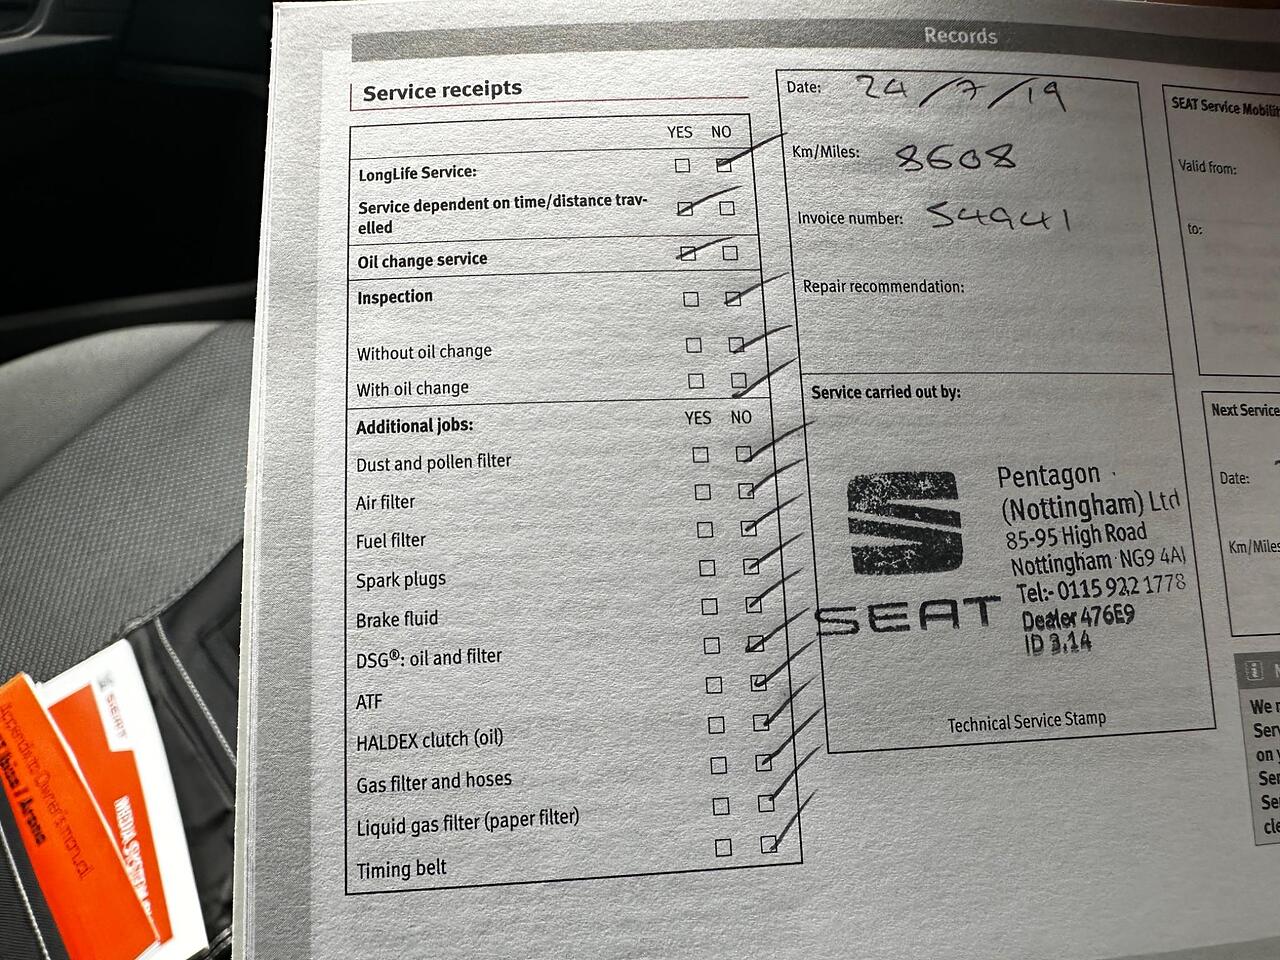 Records
Service receipts
YES NO
LongLife Service:
Service dependent on time/distance trav-
elled
Oil change service
Inspection
Without oil change
With oil change
Additional jobs: YES NO
Dust and pollen filter
Air filter
Fuel filter
Spark plugs
Brake fluid
DSG®: oil and filter
ATF
HALDEX clutch (oil)
Gas filter and hoses
Liquid gas filter (paper filter)
Timing belt
Date: 24/7/19
Km/Miles: 8608
Invoice number: 54941
Repair recommendation:
Service carried out by:
SEAT
Pentagon
(Nottingham) Ltd
85-95 High Road
Nottingham NG9 4A
Tel:- 0115 922 1778
Dealer 476E9
ID 3.14
Technical Service Stamp
SEAT Service Mobili
Valid from:
to:
Next Service
Date:
Km/Miles
We
Ser
on
Ser
Se
cle
SEAT
MEDIA SYSTEM
Appendix to Owner's manual
Ibiza / Arona